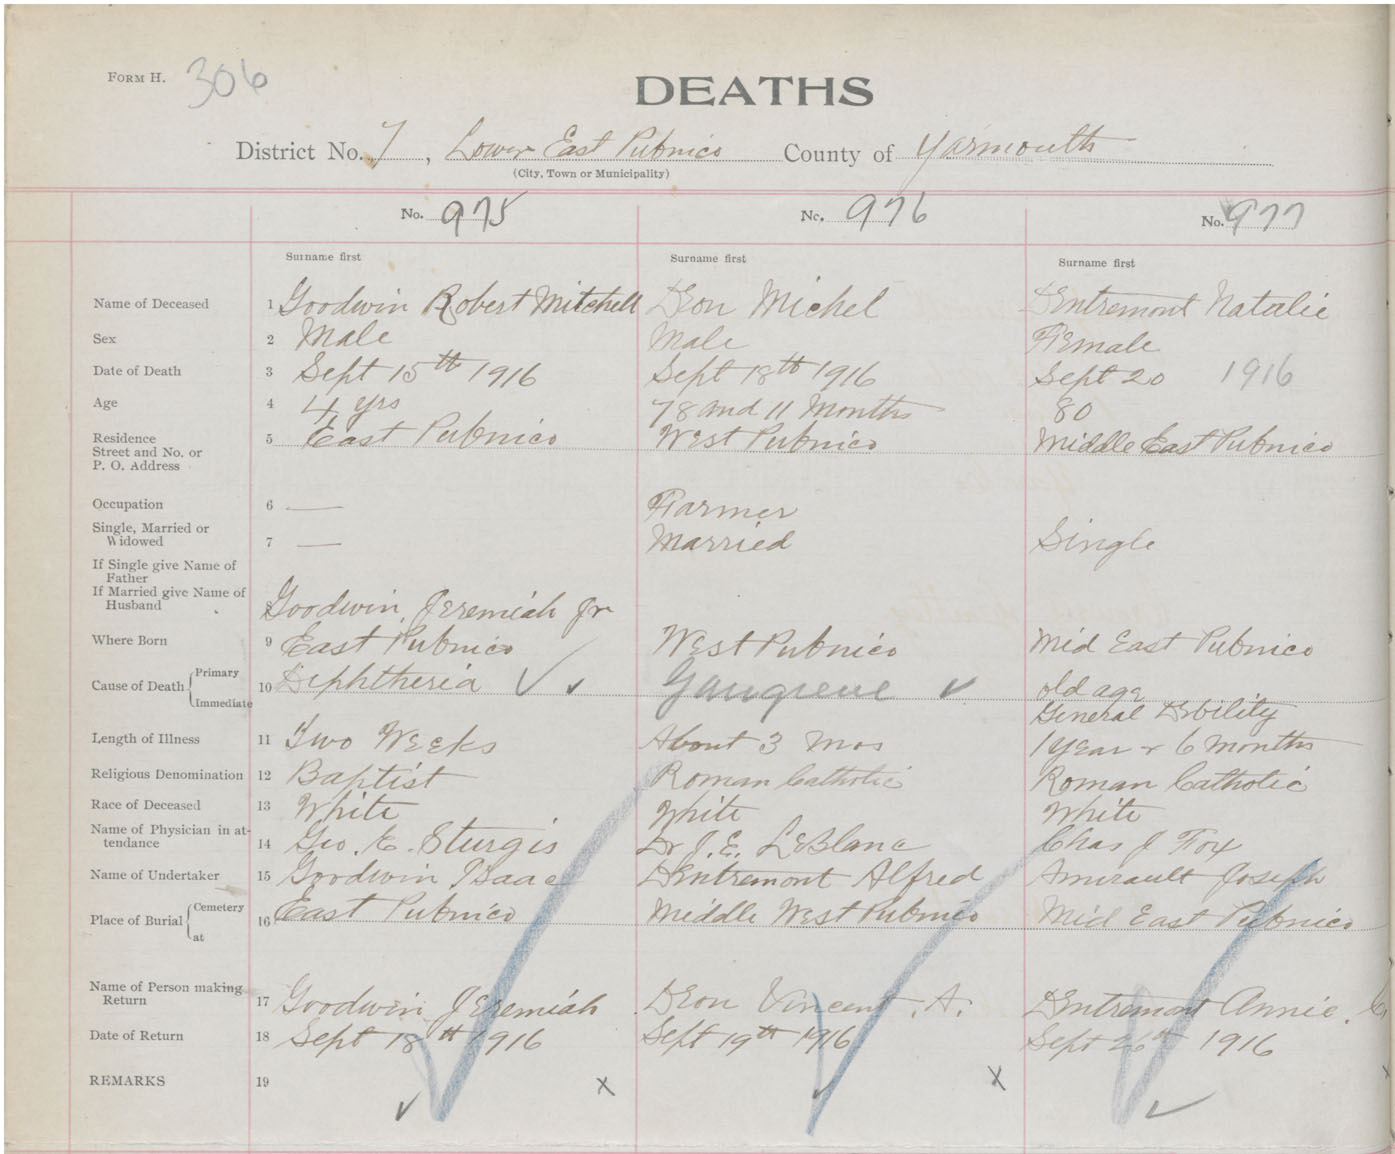 FORM H. 306
DEATHS
District No. 7, Lower East Pubnico County of Yarmouth
(City, Town or Municipality)
No. 975 No. 976 No. 977
Surname first Surname first Surname first
Name of Deceased 1 Goodwin Robert Mitchell Deon Michel Dentremont Natalie
Sex 2 Male Male Female
Date of Death 3 Sept 15th 1916 Sept 18th 1916 Sept 20 1916
Age 4 4 yrs 78 and 11 Months 80
Residence 5 East Pubnico West Pubnico Middle East Pubnico
Street and No. or
P. O. Address
Occupation 6 — Farmer
Single, Married or
Widowed 7 — Married Single
If Single give Name of
Father
If Married give Name of
Husband 8 Goodwin Jeremiah Jr
Where Born 9 East Pubnico West Pubnico Mid East Pubnico
Cause of Death { Primary 10 Diphtheria ✓ ✓ Gangrene ✓ old age
Immediate General Debility
Length of Illness 11 Two Weeks About 3 Mos 1 year + 6 Months
Religious Denomination 12 Baptist Roman Catholic Roman Catholic
Race of Deceased 13 White White White
Name of Physician in at-
tendance 14 Geo. E. Sturgis Dr J. E. LeBlanc Chas J Fox
Name of Undertaker 15 Goodwin Isaac Dentremont Alfred Amirault Joseph
Place of Burial { Cemetery 16 East Pubnico Middle West Pubnico Mid East Pubnico
at
Name of Person making
Return 17 Goodwin Jeremiah Deon Vincent .A. Dentremont Annie.
Date of Return 18 Sept 18th 1916 Sept 19th 1916 Sept 26th 1916
REMARKS 19 ✓ x ✓ x ✓